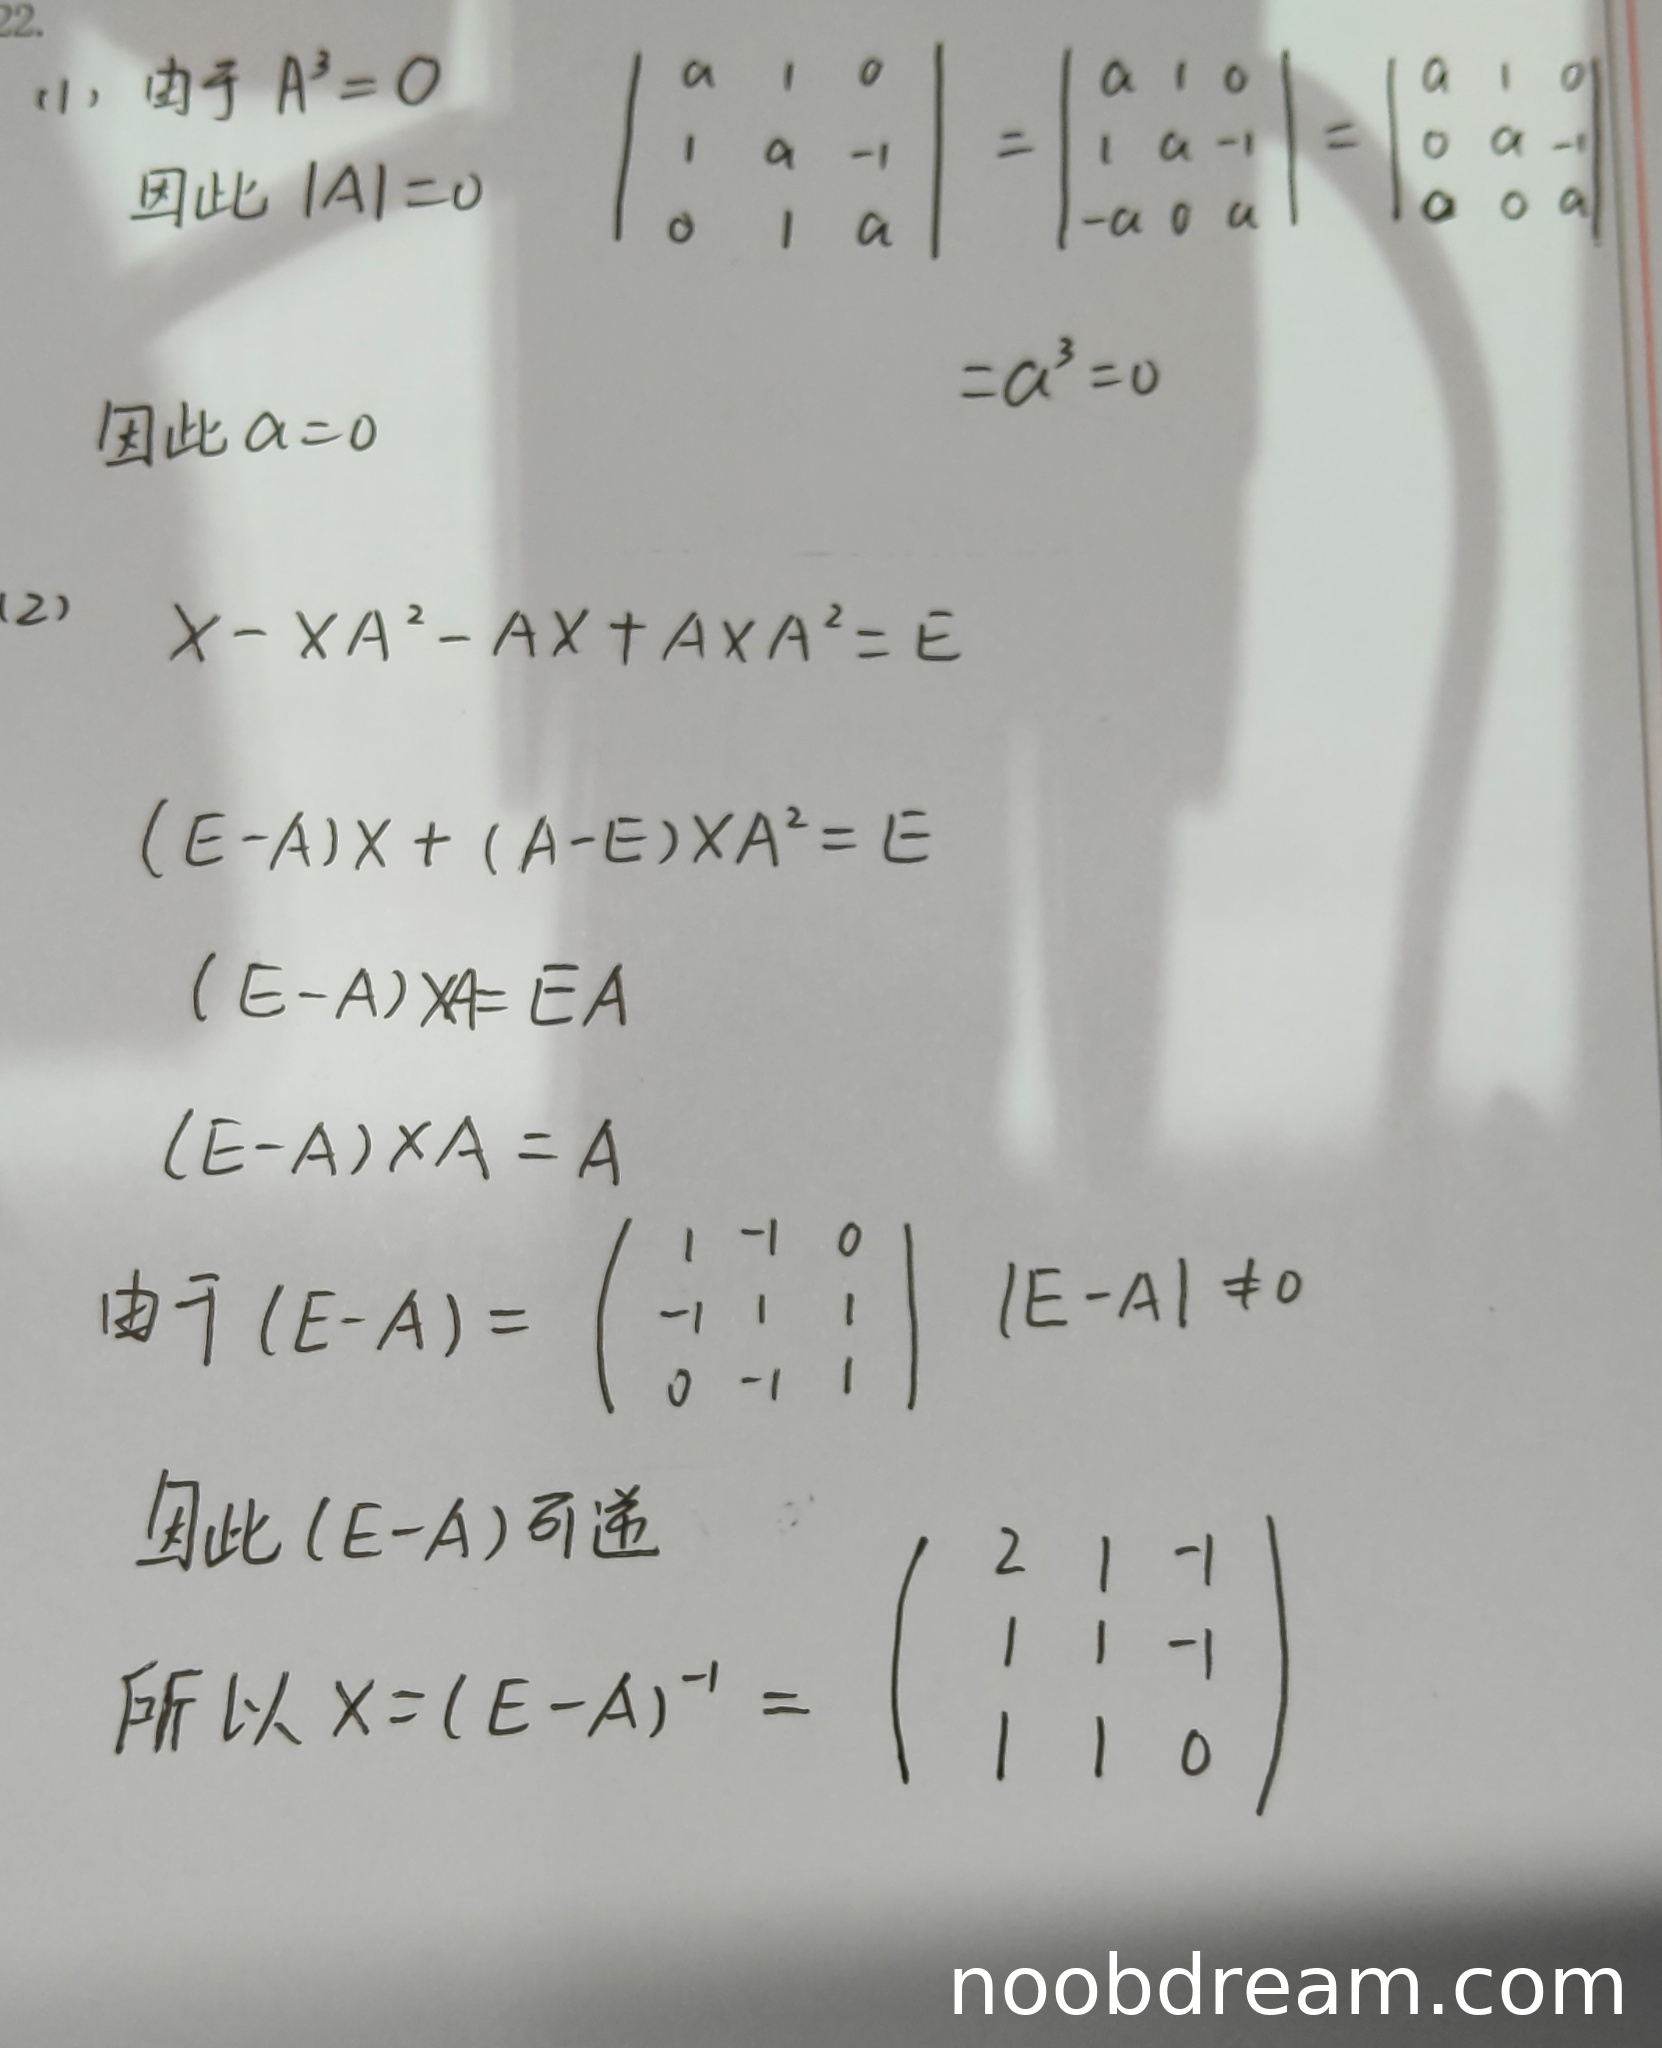 22.
(1) 由于 A³=O
因此 |A|=0
| a 1 0 | | a 1 0 | | a 1 0 |
| 1 a -1 | = | 1 a -1 | = | 0 a -1 |
| 0 1 a | | -a 0 a | | a 0 a |
=a³=0
因此 a=0
(2) X-XA²-AX+AXA²=E
(E-A)X+(A-E)XA²=E
(E-A)XA=EA
(E-A)XA=A
由于(E-A)= ( 1 -1 0 | |E-A|≠0
-1 1 1
0 -1 1
因此(E-A)可逆
所以 X=(E-A)⁻¹= ( 2 1 -1 )
1 1 -1
1 1 0
noobdream.com